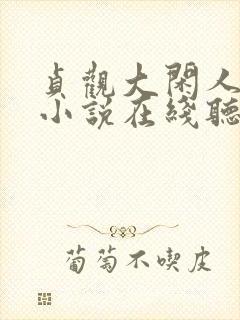 貞觀大閑人
小說在綫聽
葡萄不喫皮